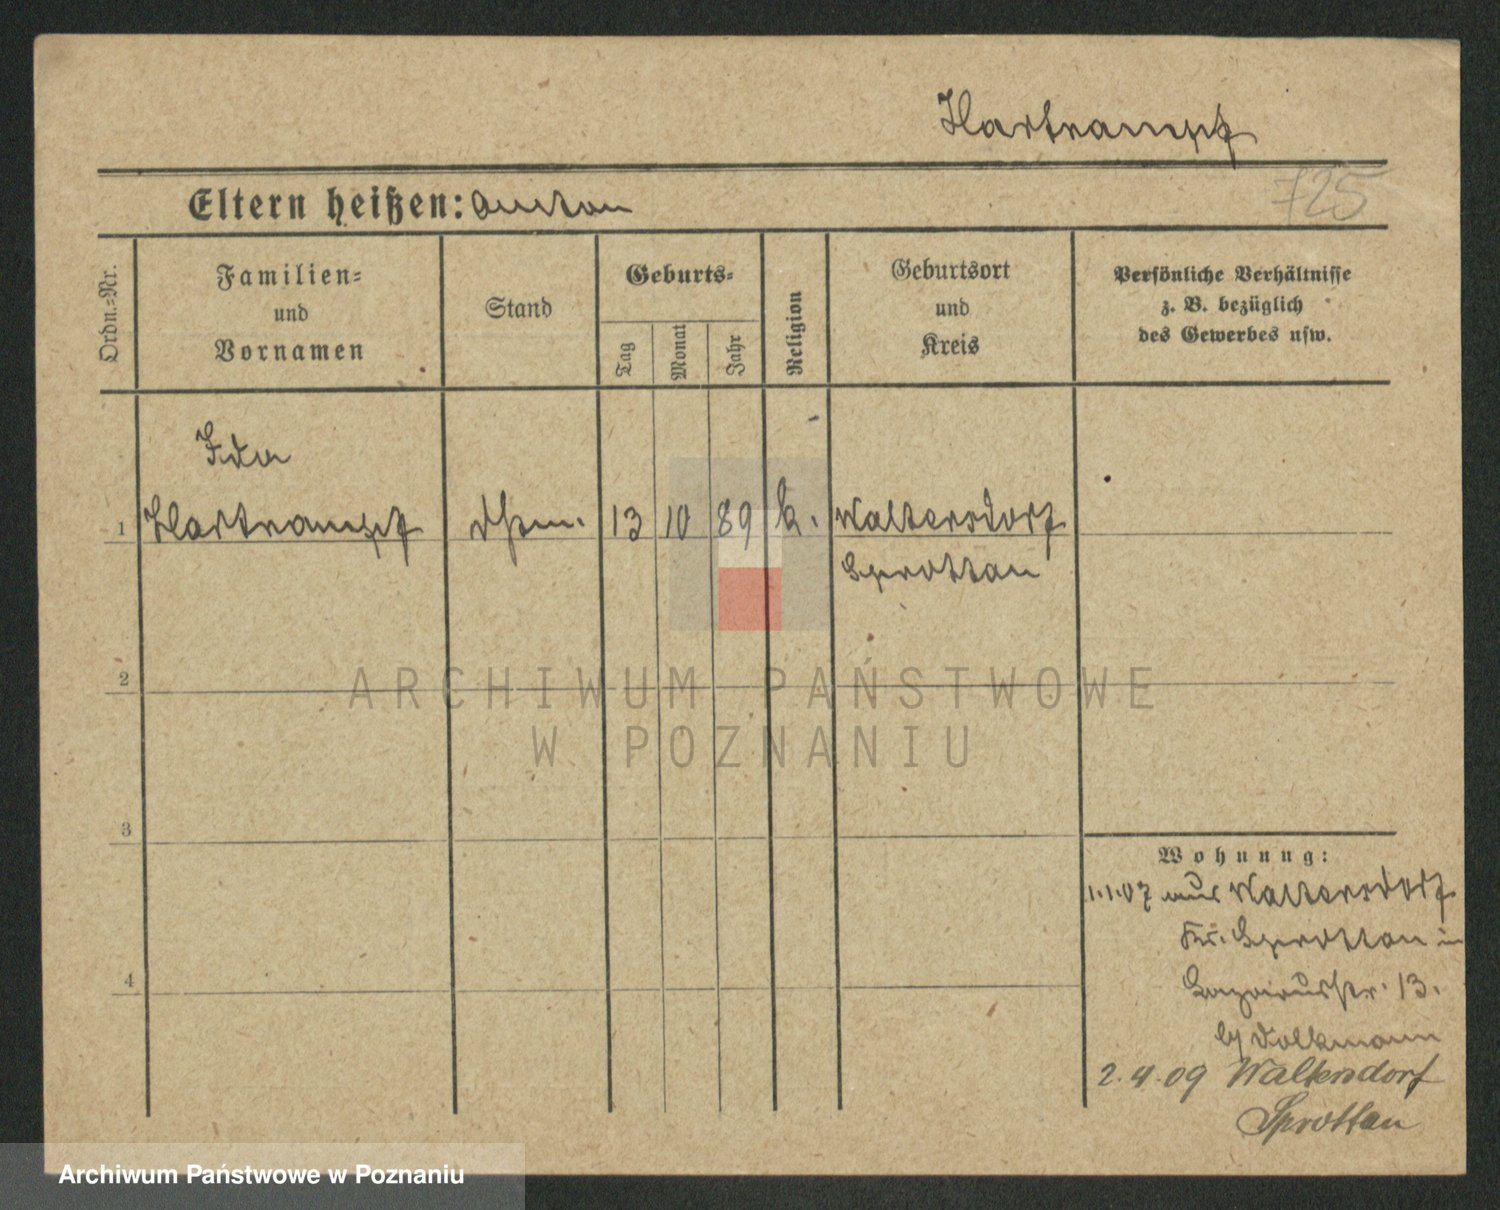 Hartrampf
725
Eltern heißen: Anton
Ordn.=Nr.
Familien=
und
Vornamen
Stand
Geburts=
Tag
Monat
Jahr
Religion
Geburtsort
und
Kreis
Persönliche Verhältnisse
z. B. bezüglich
des Gewerbes usw.
Ida
1 Hartrampf 13 10 89 k. Waltersdorf
Sprottau
2
3
4
Wohnung:
1.1.07 aus Waltersdorf
Kr. Sprottau in
Lazarusstr. 13.
b/ Volkmann
2.4.09 Waltersdorf
Sprottau
ARCHIWUM PAŃSTWOWE
W POZNANIU
Archiwum Państwowe w Poznaniu